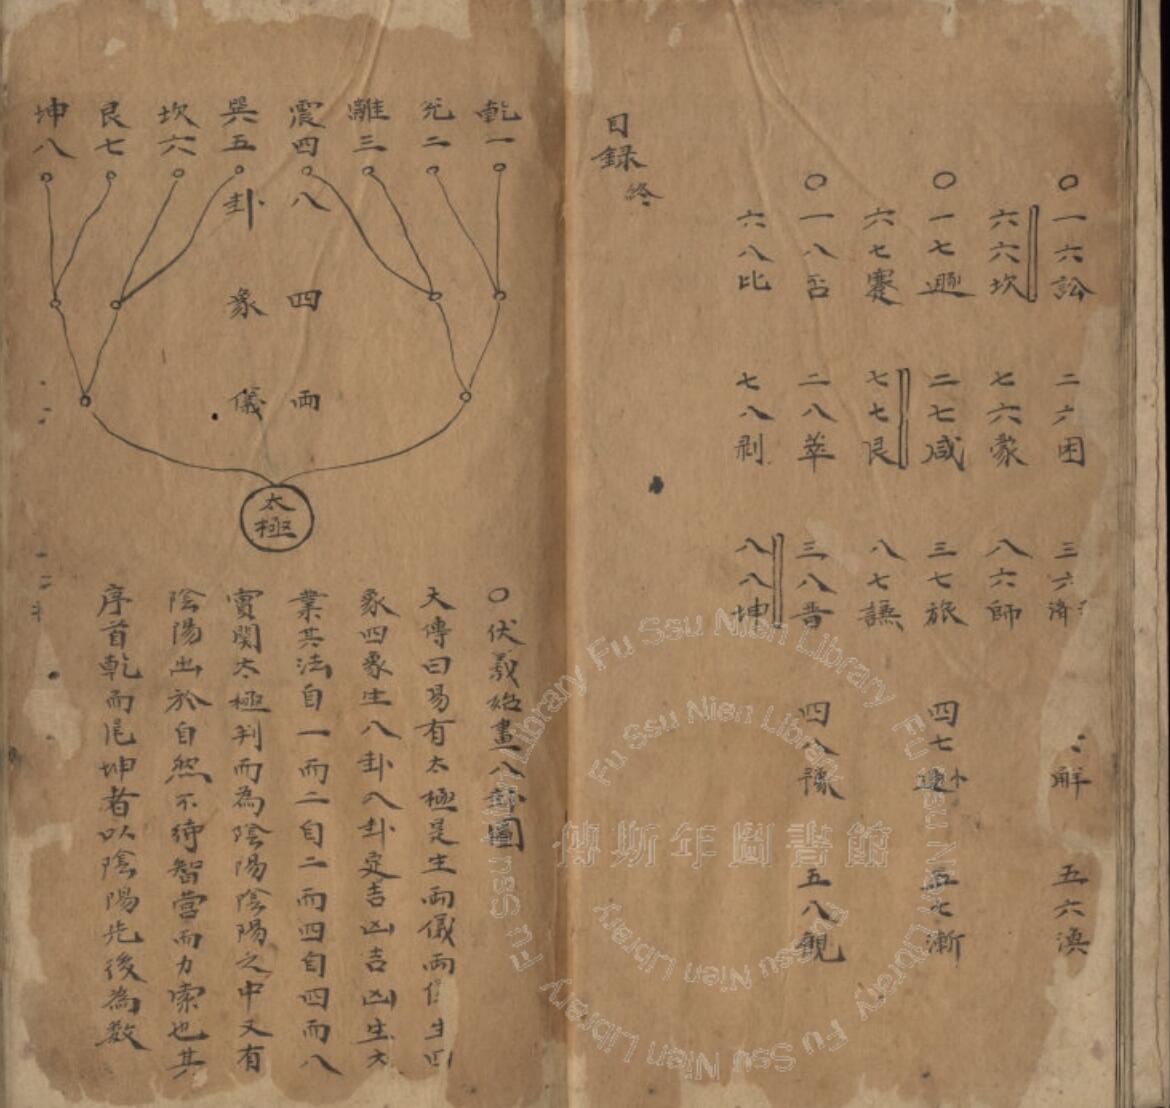 ○一六訟 二六困 三六濟 解 五六渙
六六坎 七六蒙 八六師
○一七遯 二七咸 三七旅 四七小過 五七漸
六七蹇 七七艮 八七謙
○一八否 二八萃 三八晋 四八豫 五八觀
六八比 七八剥 八八坤
目録終
乾一
兊二
離三
震四
巽五
坎六
艮七
坤八
八卦
四象
兩儀
太極
○伏羲始畫八卦圖
大傳曰易有太極是生兩儀兩 生四
象四象生八卦八卦定吉凶吉凶生大
業其法自一而二自二而四自四而八
實関太極判而為陰陽陰陽之中又有
陰陽出於自然不待智營而力索也其
序首乾而尾坤者以陰陽先後為数
傅斯年圖書館
Fu Ssu Nien Library